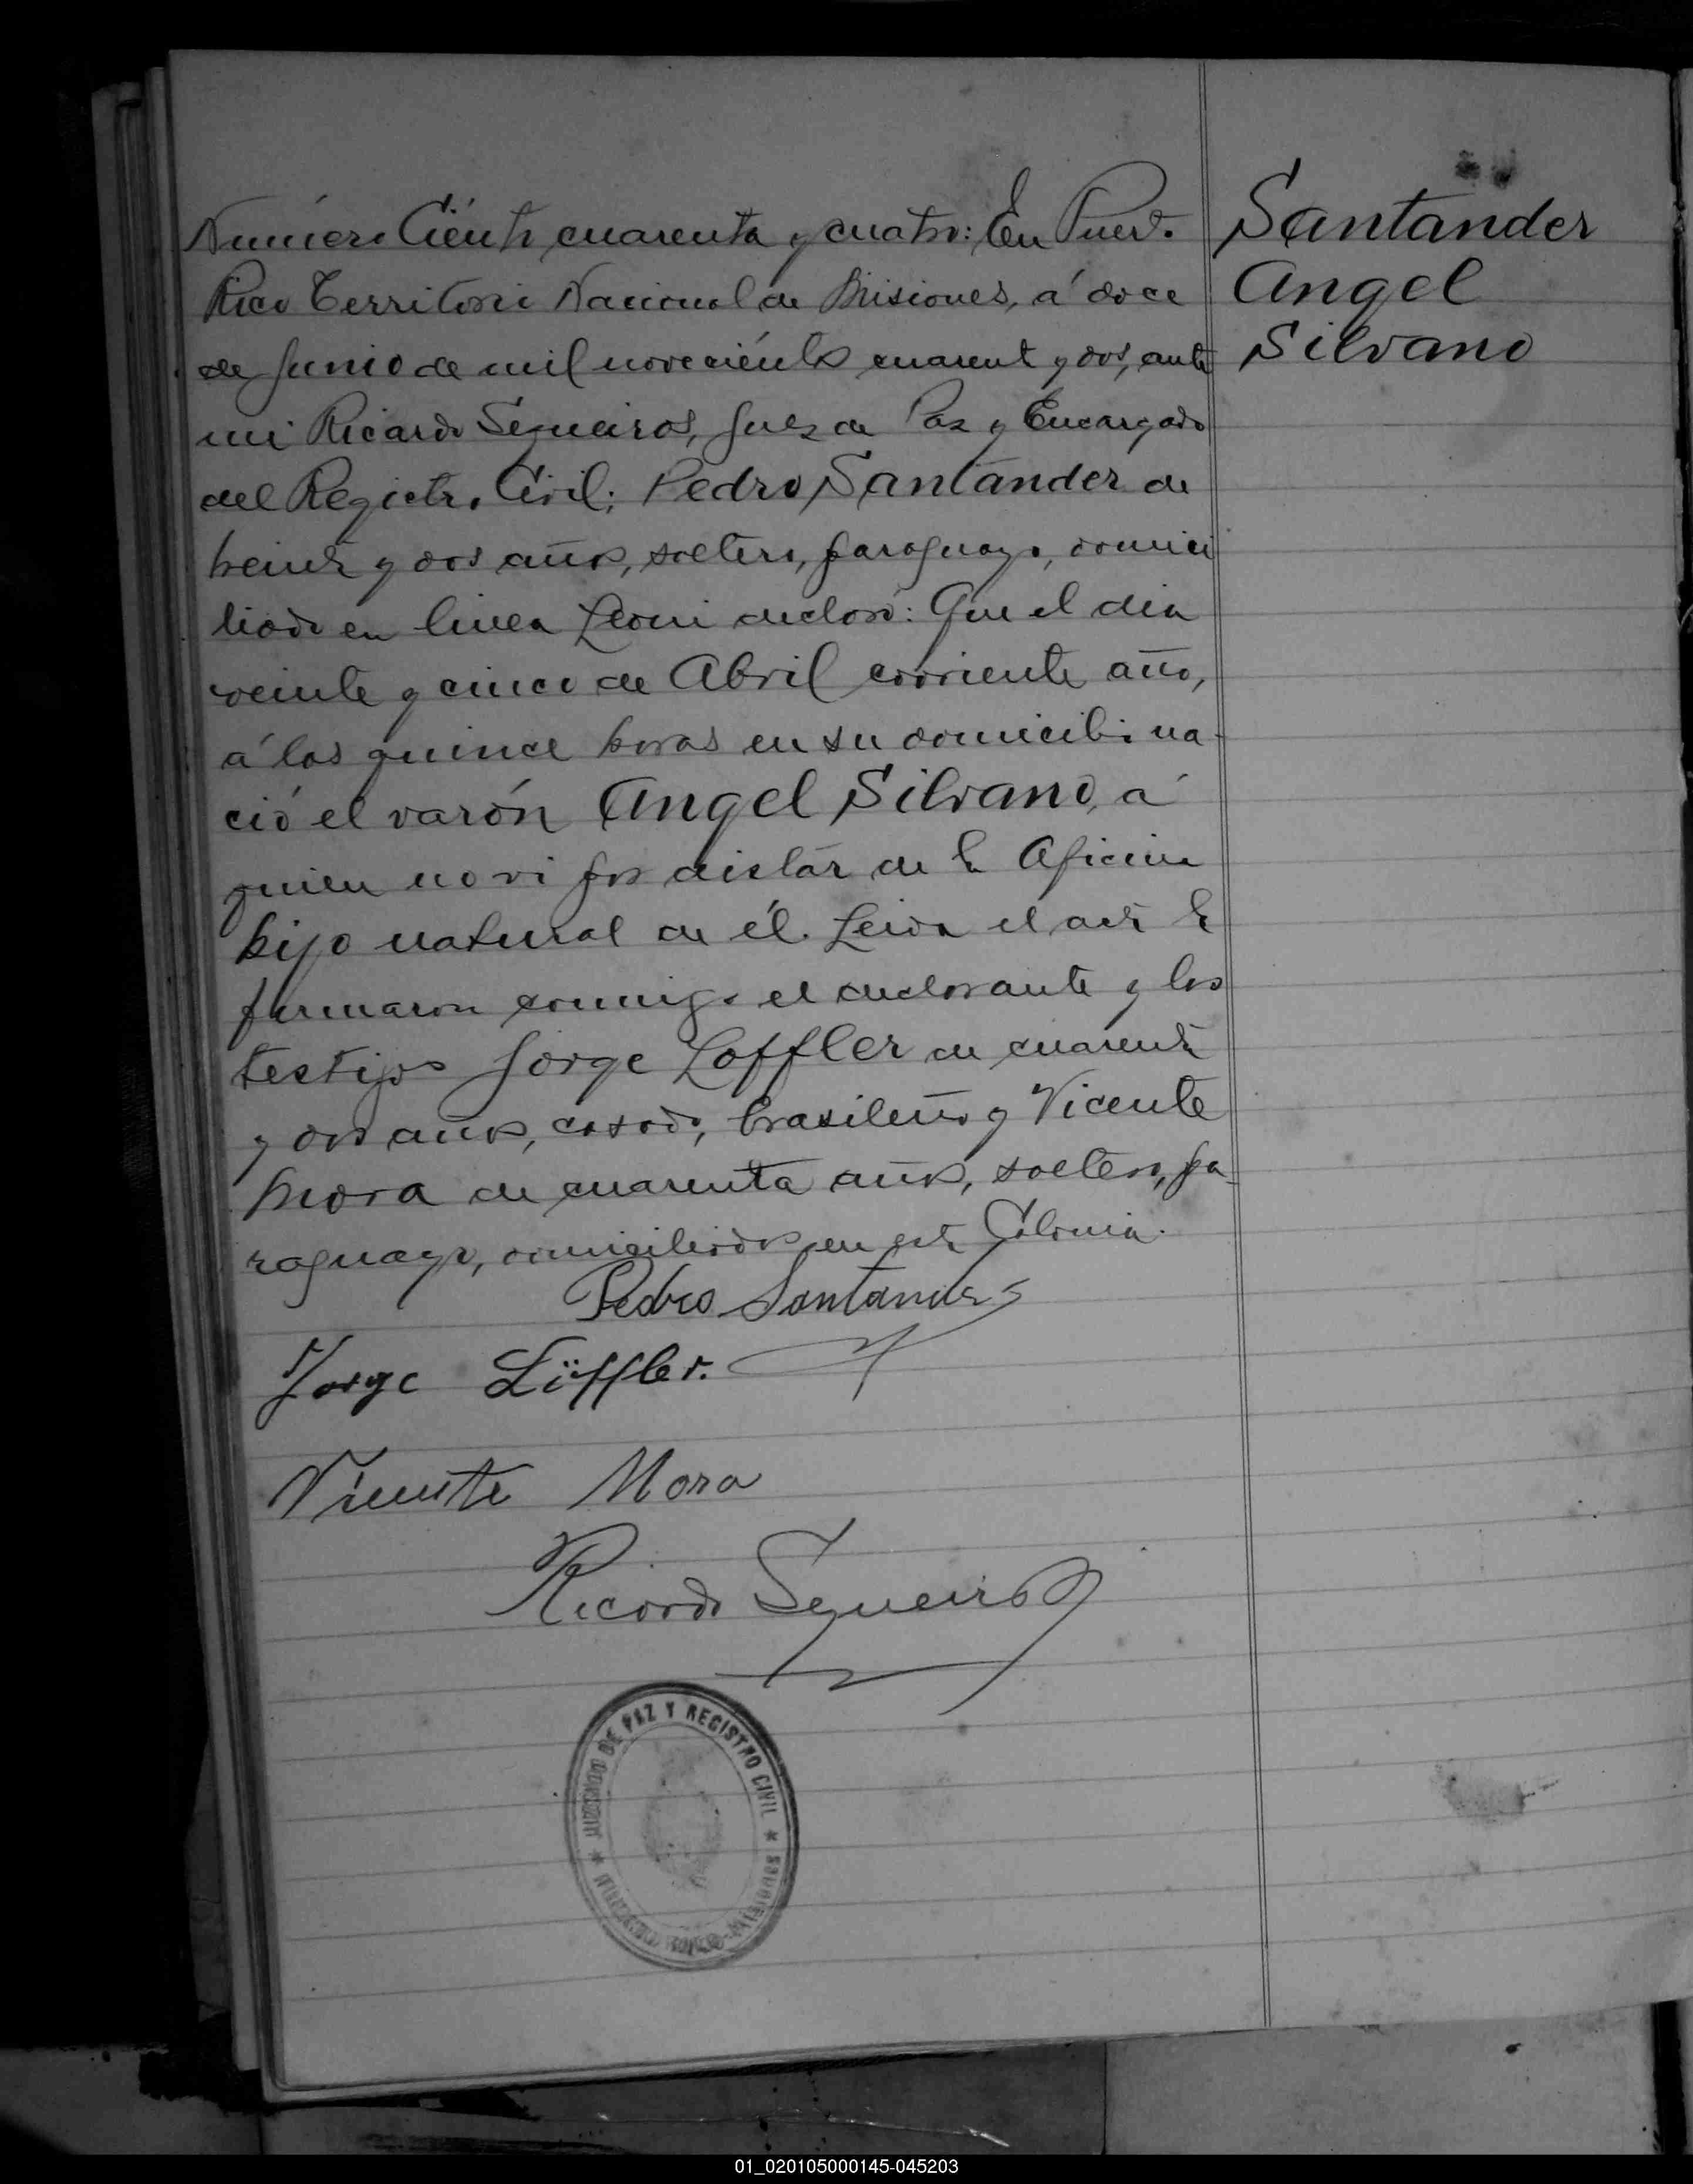 Número Ciento cuarenta y cuatro: En Puerto
Rico Territorio Nacional de Misiones, á doce
de Junio de mil novecientos cuarenta y dos, ante
mi Ricardo Sequeiros, Juez de Paz y Encargado
del Registro Civil; Pedro Santander de
treinta y dos años, soltero, paraguayo, domici
liado en linea Leoni declaró: Que el dia
veinte y cinco de Abril corriente año,
á las quince horas en su domicilio na-
ció el varón Angel Silvano, á
quien no vi por distar de la Oficina
hijo natural de él. Leida el acta la
firmaron conmigo el declarante y los
testigos Jorge Loffler de cuarenta
y dos años, casado, brasileño y Vicente
Mora de cuarenta años, soltero, pa-
raguayo, domiciliados en esta Colonia.
Pedro Santander
Jorge Löffler.
Vicente Mora
Ricardo Sequeiros
Santander
Angel
Silvano
JUZGADO DE PAZ Y REGISTRO CIVIL
01_020105000145-045203